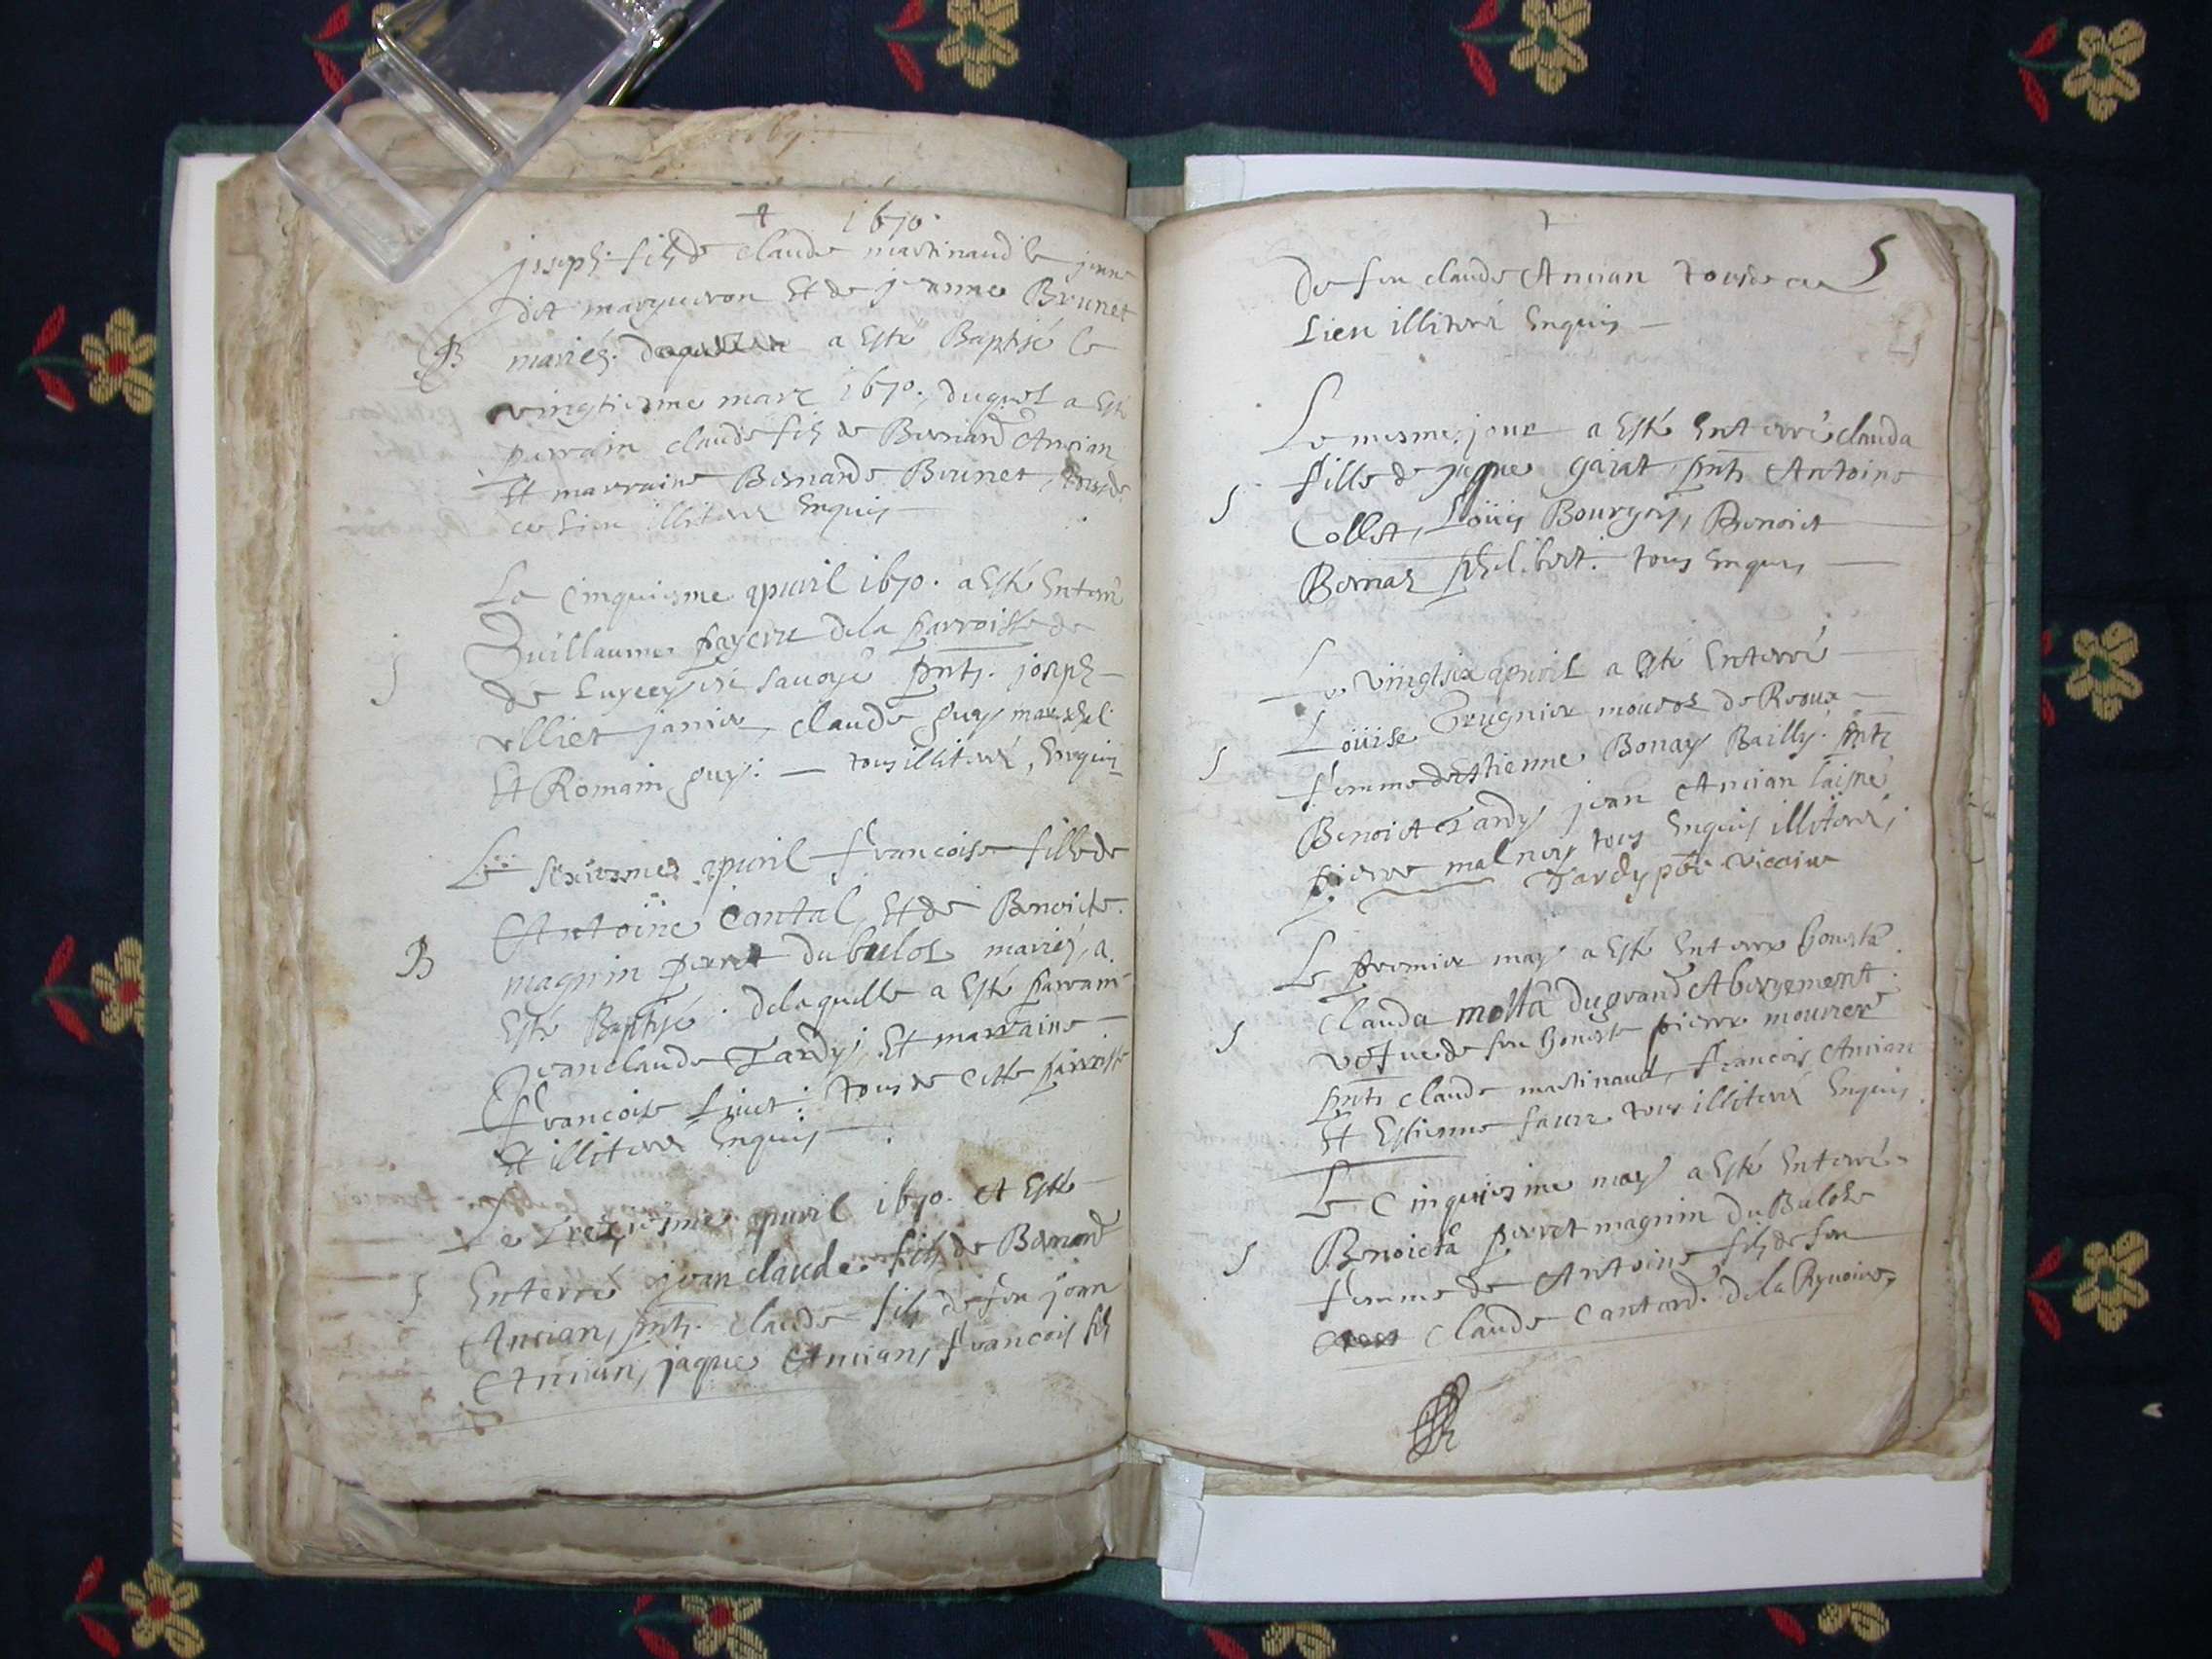 1670
joseph fils de claude martinaud le jeune
dit marqueron Et de jeanne Brunet
B mariés a Esté Baptisé le
vingtiesme mars 1670. duquel a Esté
parrain claude fils de Bernard Ancian
Et marraine Bernarde Brunet, tous de
ce lieu illiteré Enquis
Le Cinquiesme apvril 1670. a Esté Enterré
S Guillaume payern dela parroisse de
de savoye pnts. joseph
ulliet janier, claude guy mareschal
Et Romain guy. tous illiteré, Enquis
Le sixiesme apvril francoise fille de
Antoine Cantal Et de Benoicte
B magnin perret du bulos mariés, a
Esté Baptisé. delaquelle a Esté parrain
jeanclaude Tardy, Et marraine
francoise tous de Cette parroisse
Et illiteré Enquis
Le Treziesme apvril 1670. a Esté
S Enterré jean claude fils de Bernard
Ancian, pnts. claude fils de feu jean
Ancian, jaque Ancian, francois fils
5
De feu claude Ancian tous de ce
Lieu illiteré Enquis
Le mesme jour a Esté Enterré clauda
fille de jaque gaiat pnts Antoine
S Collet, Loüis Bourgois, Benoict
Bernaz philibert. tous Enquis
Le vingtsix apvril a Esté Enterré
Loüise Trugnier
S femme destienne Bonay Bailly. pnts
Benoict Tardy jean Ancian laisné
pierre malney tous Enquis illiteré,
Tardy pbr viccaire
Le premier may a Esté Enterré honeste
Clauda molta du grand Abergement
S vefue de feu honeste pierre mourier
pnts claude martinaud, francois Ancian
Et Estienne faure tous illiteré Enquis
Le Cinquiesme may a Esté Enterré
S Benoicta perret magnin du Buloz
femme de Antoine fils de feu
Claude Cantard. de la